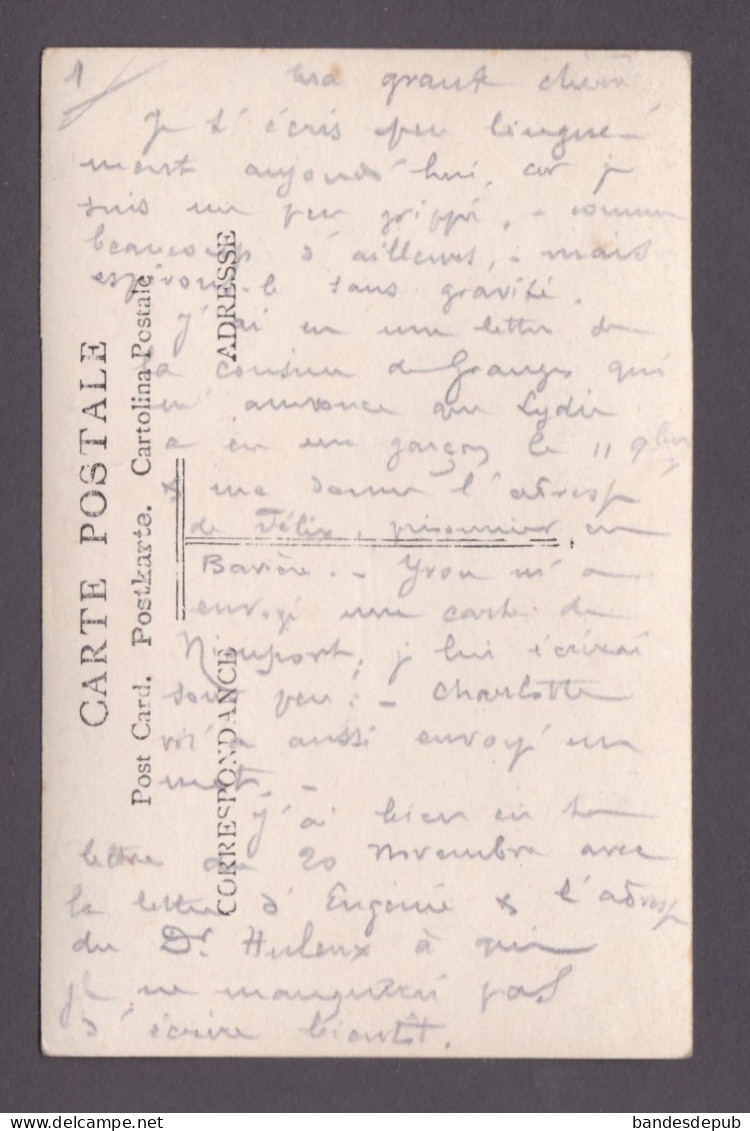 1
Ma grande chérie
Je t'écris peu longue
ment aujourd'hui, car je
suis un peu grippé, - comme
beaucoup d'ailleurs, - mais
espérons-le sans gravité.
J'ai eu une lettre de
la cousine de Granges qui
m'annonce que Lydie
a eu un garçon le 11 9bre
& me donne l'adresse
de Félix, prisonnier en
Bavière. - Yvon m'a
envoyé une carte de
Nieuport, je lui écrirai
sous peu. - Charlotte
m'a aussi envoyé un
mot. -
J'ai bien eu ta
lettre du 20 Novembre avec
la lettre d'Eugénie & l'adresse
du Dr. Huleux à qui
je ne manquerai pas
d'écrire bientôt.
CARTE POSTALE
Post Card. Postkarte. Cartolina Postale
CORRESPONDANCE ADRESSE
delcampe.net
bandesdepub